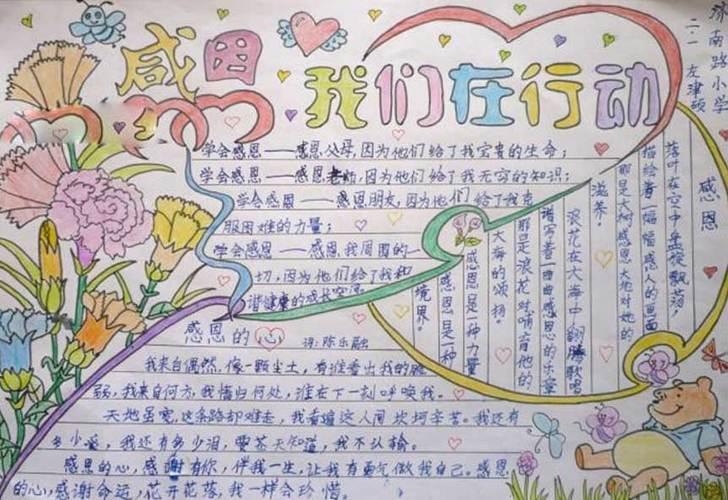 感恩
我们在行动
南路小学
二·一 左津硕
学会感恩——感恩父母,因为他们给了我宝贵的生命;
学会感恩——感恩老师,因为他们给了我无穷的知识;
学会感恩——感恩朋友,因为他们给了我克
服困难的力量;
学会感恩——感恩我周围的一
切,因为他们给了我和
谐健康的成长空间
感恩
落叶在空中盘旋飘荡,
描绘着一幅幅感人的画面
那是大树感恩大地对她的
滋养。
浪花在大海中翻腾歌唱
谱写着一曲曲感恩的乐章
那是浪花对哺育他的
大海的颂扬。
感恩是一种力量
感恩是一种
境界。
感恩的心
词:陈乐融
我来自偶然,像一颗尘土,有谁看出我的脆
弱,我来自何方,我情归何处,谁在下一刻呼唤我。
天地虽宽,这条路却难走,我看遍这人间坎坷辛苦。我还有
多少爱,我还有多少泪,要苍天知道,我不认输。
感恩的心,感谢有你,伴我一生,让我有勇气做我自己。感恩
的心,感谢命运,花开花落,我一样会珍惜。